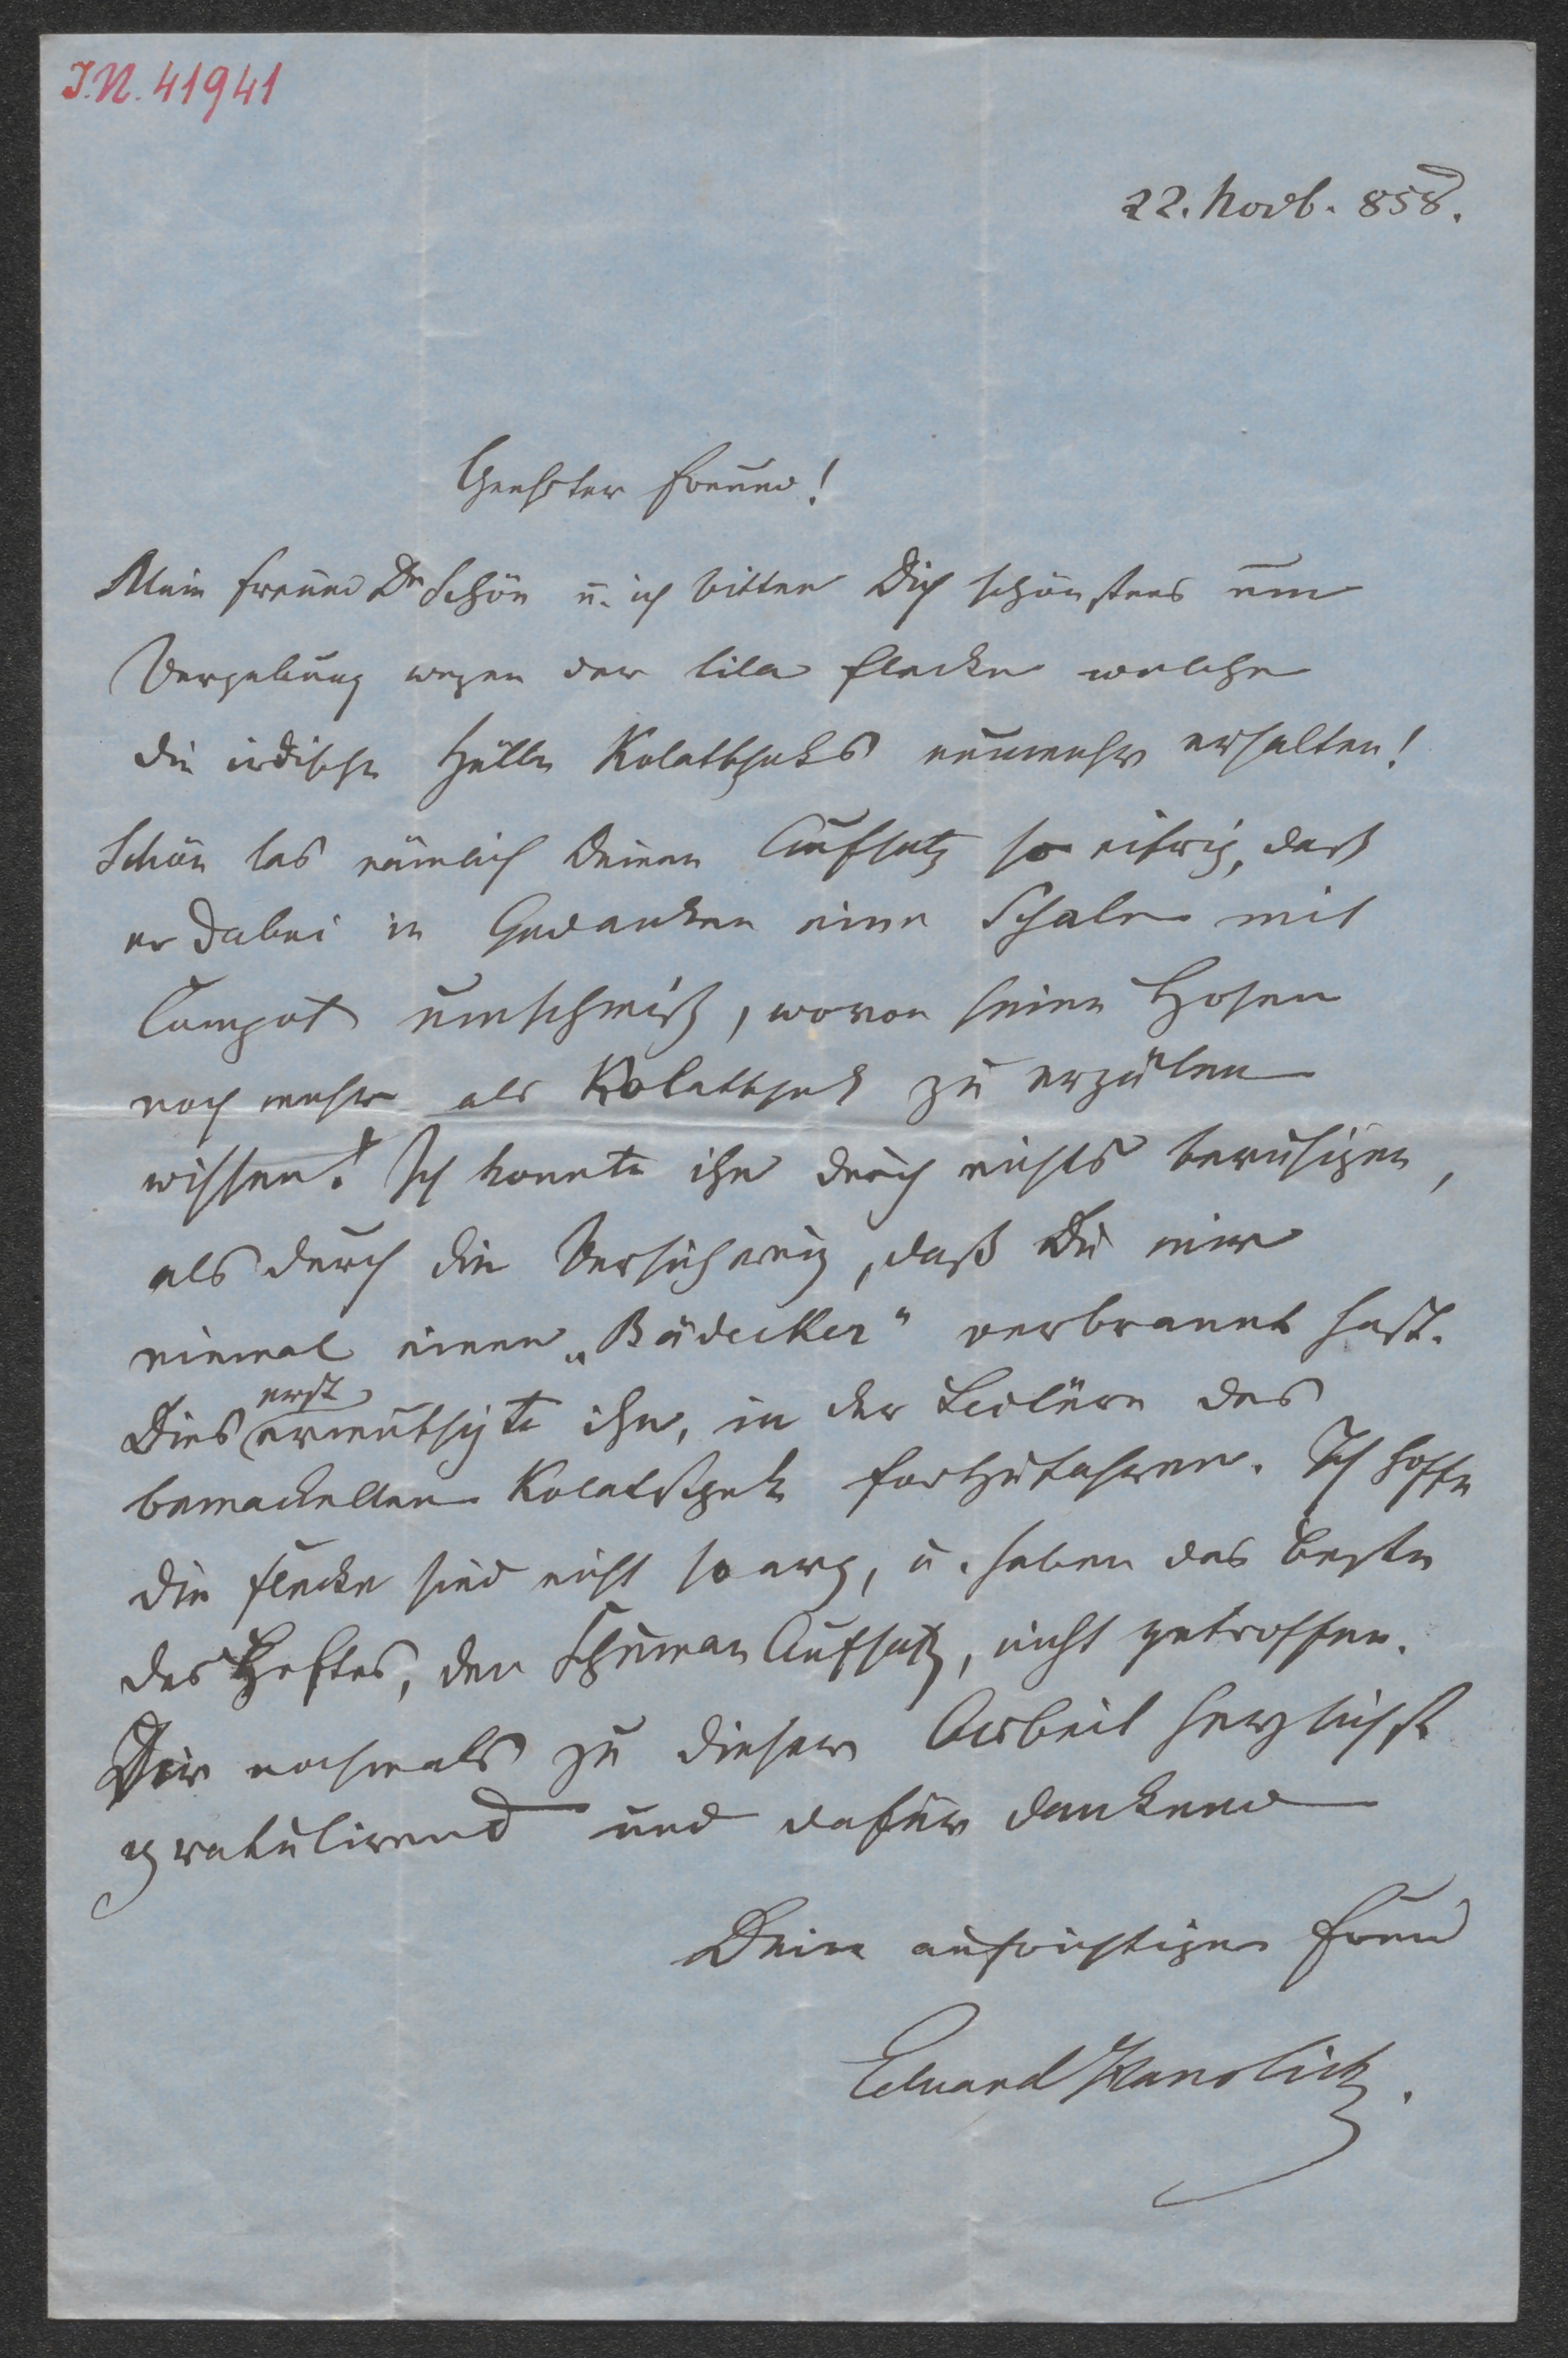 J.N. 41941
22. Novb. 858.
Geehrter Freund!
Mein Freund Dr Schön u. ich bitten Dich schönstens um
Vergebung wegen der lila Flecke welche
die irdische Hülle Kolatscheks nunmehr erhalten!
Schön las nämlich Deinen Aufsatz so eifrig, daß
er dabei in Gedanken eine Schale mit
Compot umschmiß, wovon seine Hosen
noch mehr als Kolatschek zu erzälen
wissen! Ich konnte ihn durch nichts beruhigen,
als durch die Versicherung, daß Du mir
einmal einen „Bädecker" verbrannt hast.
erst
Dies ermuthigte ihn, in der Lectüre des
bemackelten Kolatschek fortzufahren. Ich hoffe
die Flecke sind nicht so arg, u. haben das Beste
des Heftes, den Schuman Aufsatz, nicht getroffen.
Dir nochmals zu dieser Arbeit herzlichst
gratulirend und dafür dankend
Dein aufrichtiger Freund
Eduard Hanslick.